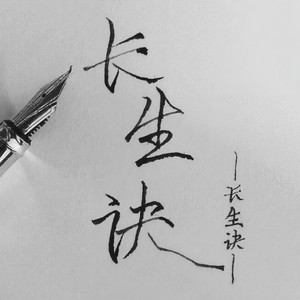 长生诀
长生诀